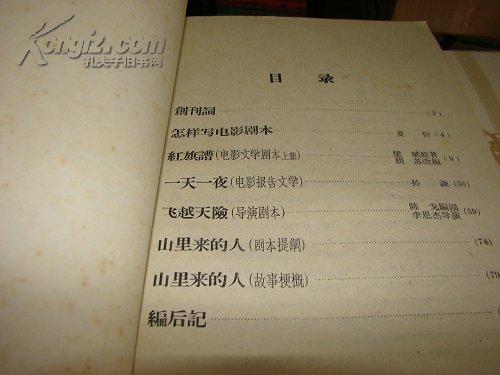 Kongfz.com
孔夫子旧书网
目 录
創刊詞 (2)
怎样写电影剧本 夏 衍 (4)
紅旗譜(电影文学剧本上集) 梁 斌原著 胡 苏改編 (9)
一天一夜(电影报告文学) 孙 謙 (36)
飞越天險(导演剧本) 陈 戈編剧 李恩杰导演 (59)
山里来的人(剧本提綱) (74)
山里来的人(故事梗概) (79
編后記